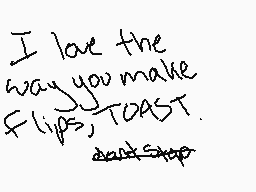 I love the
way you make
flips, TOAST.